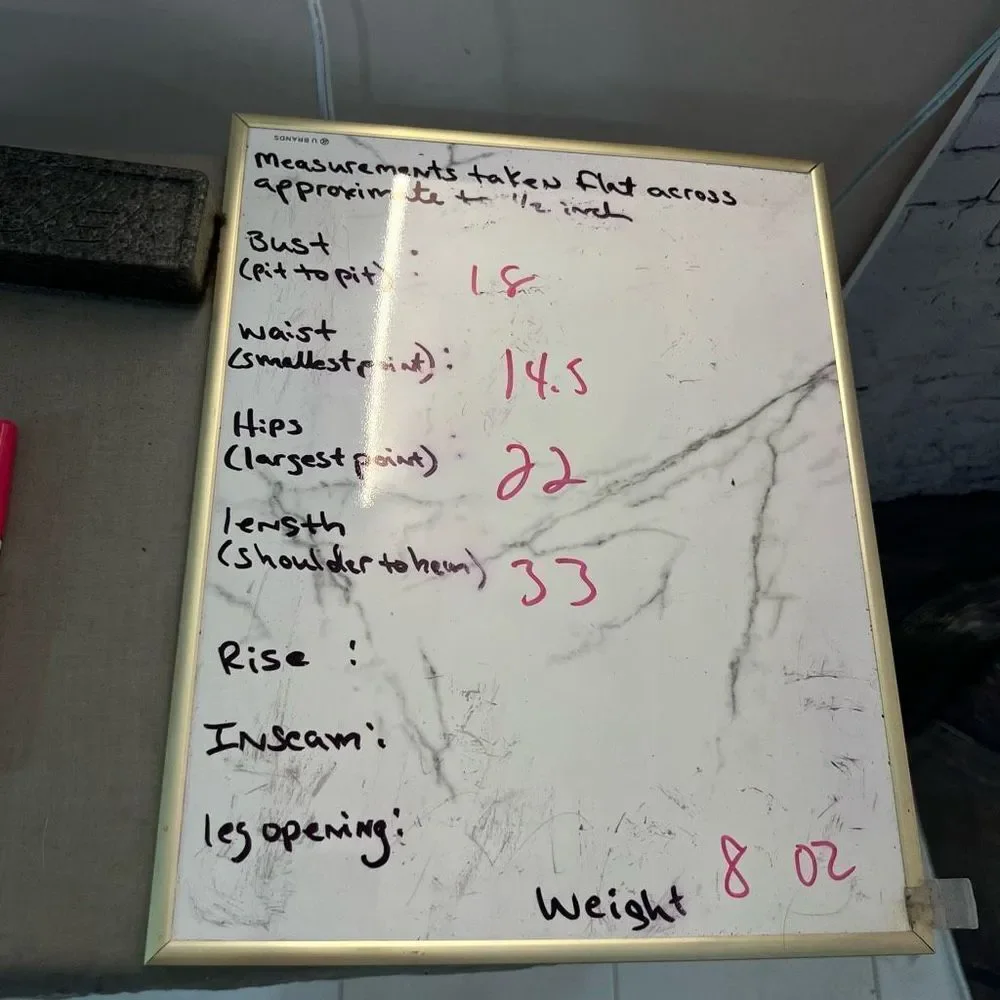 U BRANDS
Measurements taken flat across
approximate to 1/2 inch
Bust
(pit to pit) : 18
Waist
(smallest point): 14.5
Hips
(largest point) 22
length
(shoulder to hem) 33
Rise :
Inseam:
leg opening:
Weight 8 oz